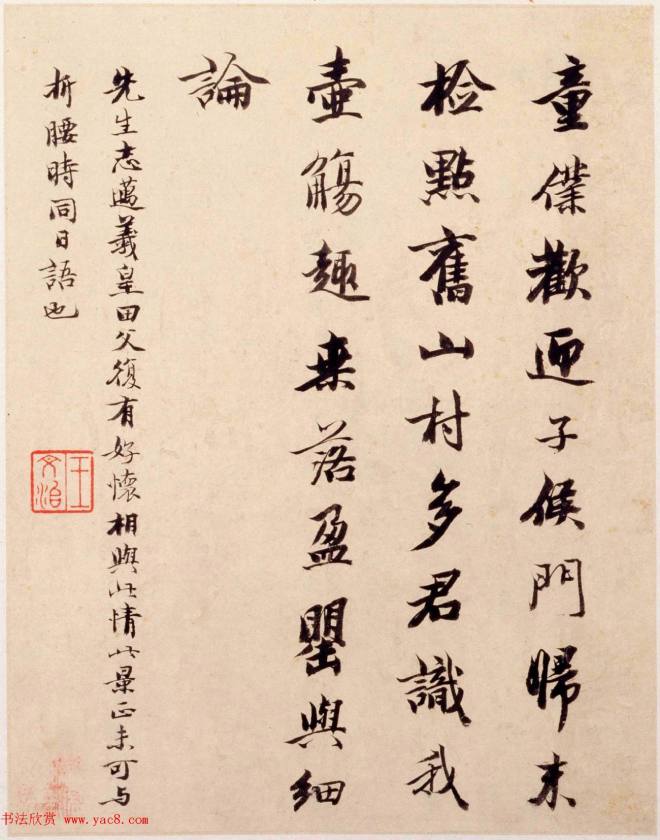 童僕歡迎子候門歸来
檢點舊山村多君識我
壺觴趣桒落盈罌與細
論
先生志邁羲皇田父復有好懷相與此情此景正未可与
折腰時同日語也
王文治
书法欣赏 www.yac8.com